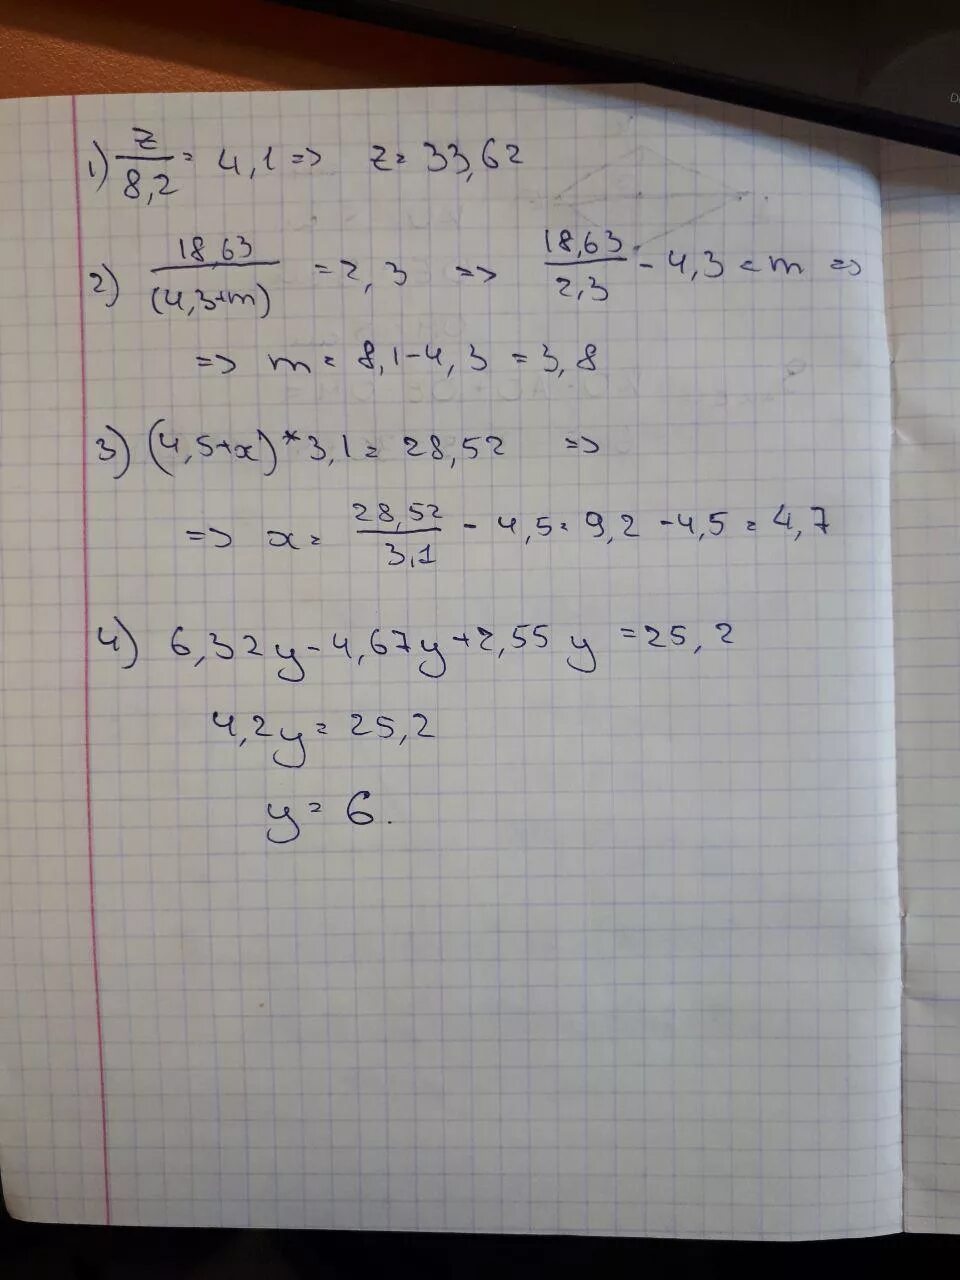 1) z/8,2 = 4,1 => z = 33,62
2) 18,63/(4,3+m) = 2,3 => 18,63/2,3 - 4,3 = m =>
=> m = 8,1-4,3 = 3,8
3) (4,5+x)*3,1 = 28,52 =>
=> x = 28,52/3,1 - 4,5 = 9,2 - 4,5 = 4,7
4) 6,32y - 4,67y + 2,55y = 25,2
4,2y = 25,2
y = 6.